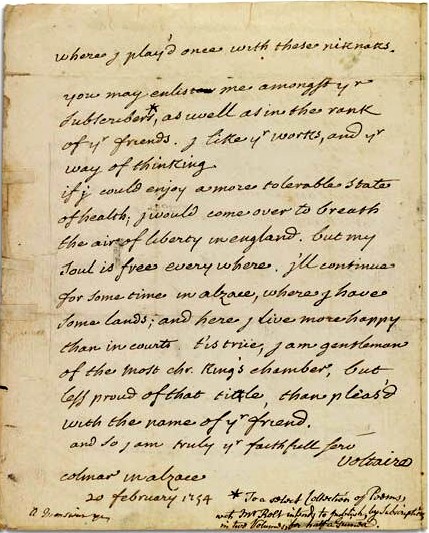 where j play'd once with these nicknaks.
you may enlist me amongst yr
subscribers*, as well as in the rank
of yr friends. j like yr works, and yr
way of thinking
if j could enjoy a more tolerable state
of health, j would come over to breath
the air of liberty in england. but my
soul is free every where. j'll continue
for some time in alzace, where j have
some lands; and here j live more happy
than in courts t'is true, j am gentleman
of the most chr. King's chamber, but
less proud of that title, than pleas'd
with the name of yr friend.
and so j am truly yr faithfull serv
Voltaire
colmar in alzace
20 february 1754
* To a select Collection of Poems,
wch Mr Rolt intends to publish, by Subscription
in two Volumes, for half a Guinea.